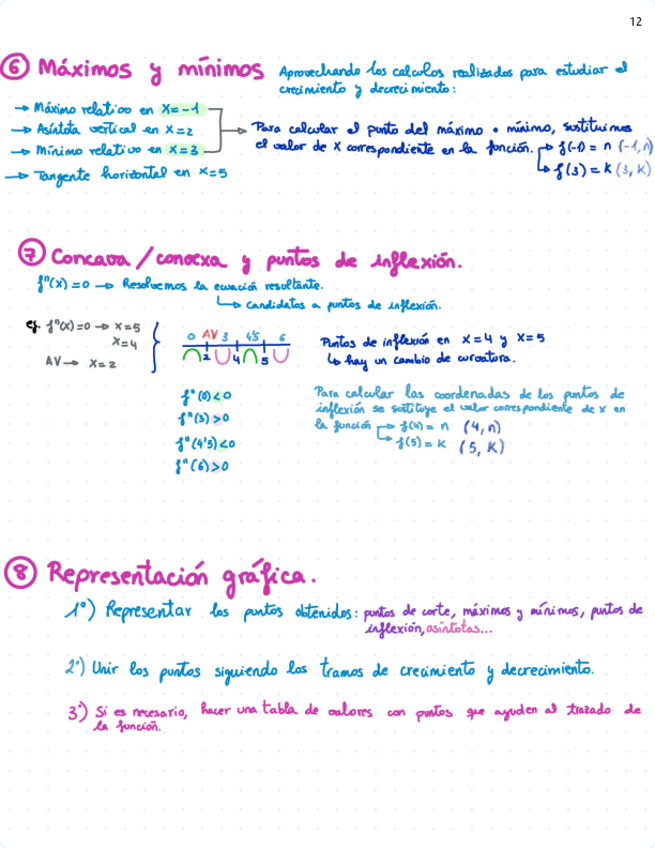 12
⑥ Máximos y mínimos Aprovechando los calculos realizados para estudiar el
crecimiento y decrecimiento:
→ Máximo relativo en x=-1
→ Asíntota vertical en x=2
→ Mínimo relativo en x=3
→ Tangente horizontal en x=5
→ Para calcular el punto del máximo o mínimo, sustituimos
el valor de x correspondiente en la función. → f(-1) = n (-1,n)
→ f(3) = k (3, k)
⑦ Concava/convexa y puntos de inflexión.
f"(x) = 0 → Resolvemos la ecuación resultante.
→ Candidatos a puntos de inflexión.
ej. f"(x)=0 → x=5
x=4
AV → x=2
0 AV 3 4'5 6
2 4 5
f"(0)<0
f"(3)>0
f"(4'5)<0
f"(6)>0
Puntos de inflexión en x=4 y x=5
↳ hay un cambio de curvatura.
Para calcular las coordenadas de los puntos de
inflexión se sustituye el valor correspondiente de x en
la función → f(4) = n (4,n)
→ f(5) = k (5, k)
⑧ Representación gráfica.
1º) Representar los puntos obtenidos: puntos de corte, máximos y mínimos, puntos de
inflexión, asíntotas...
2º) Unir los puntos siguiendo los tramos de crecimiento y decrecimiento.
3º) Si es necesario, hacer una tabla de valores con puntos que ayuden al trazado de
la función.